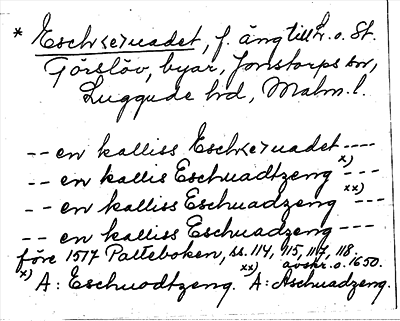 * Esch<e>uadet, f. äng till L. o. St.
Görslöv, byar, Jonstorps sn,
Luggude hd, Malm. l.
-- en kalliss Esch<e>uadet ----
-- en kallis Eschuadtzeng x) ---
-- en kalliss Eschuadzeng xx) ---
-- en kalliss Eschuadzeng
före 1517 Palteboken, ss. 114, 115, 117, 118
avskr. o. 1650.
x) A: Eschuodtzeng. xx) A: Aschuadzeng.